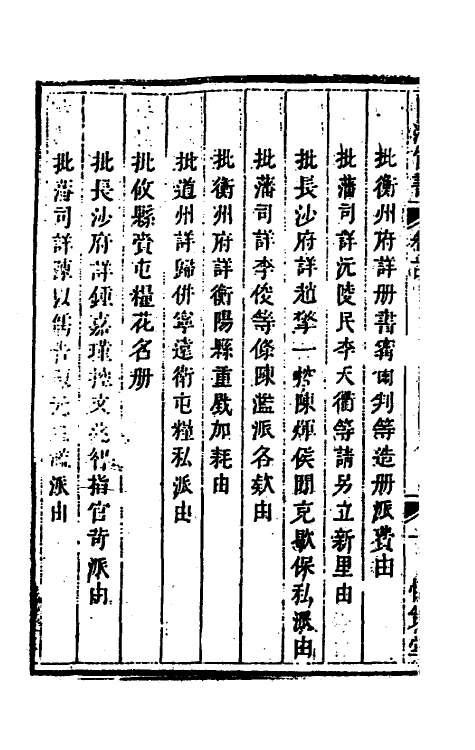 批衡州府詳册書甯爾判等造册派費由
批藩司詳沅陵民李天衢等請另立新里由
批長沙府詳趙擎一等陳煇侯開克歇保私派由
批藩司詳李俊等條陳濫派各欵由
批衡州府詳衡陽縣重戥加耗由
批道州詳歸併寧遠衛屯糧私派由
批攸縣賫屯糧花名册
批長沙府詳鍾嘉瑾控文 指官苛派由
批藩司詳 濫派由